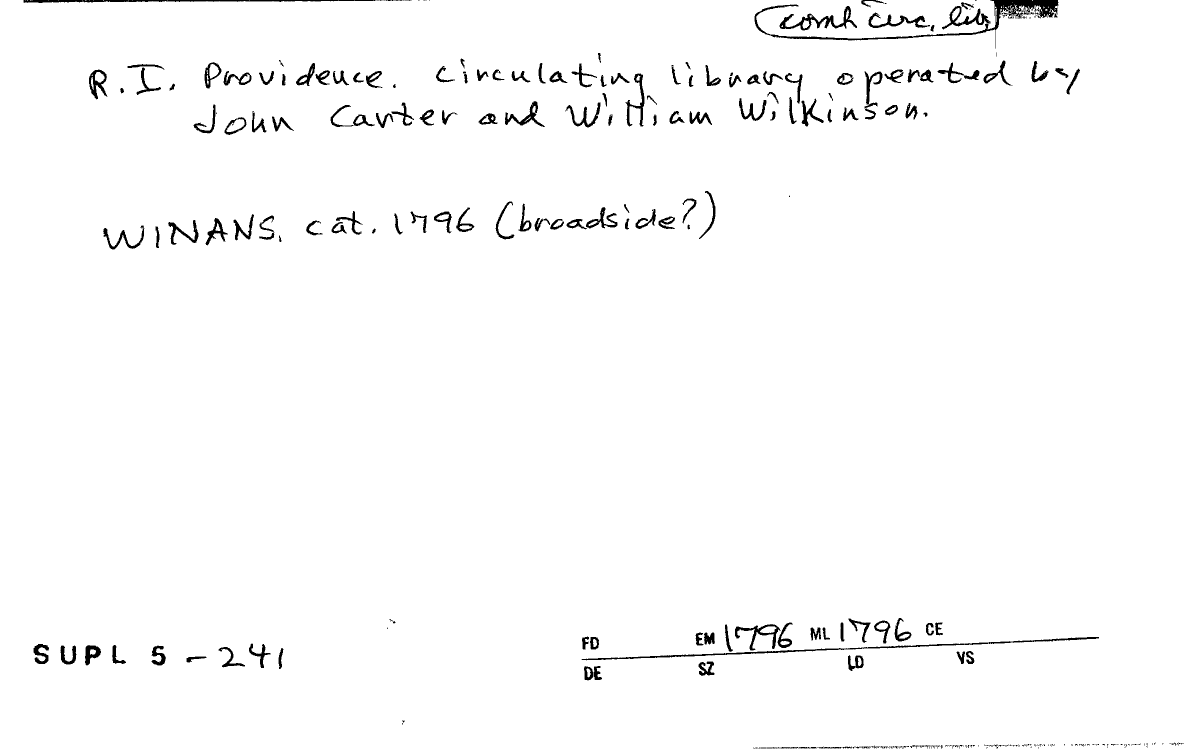 comh circ. lib.
R.I. Providence. circulating library operated by
John Carter and William Wilkinson.
WINANS, cat. 1796 (broadside?)
FD EM 1796 ML 1796 CE
SUPL 5 - 241
DE SZ LD VS